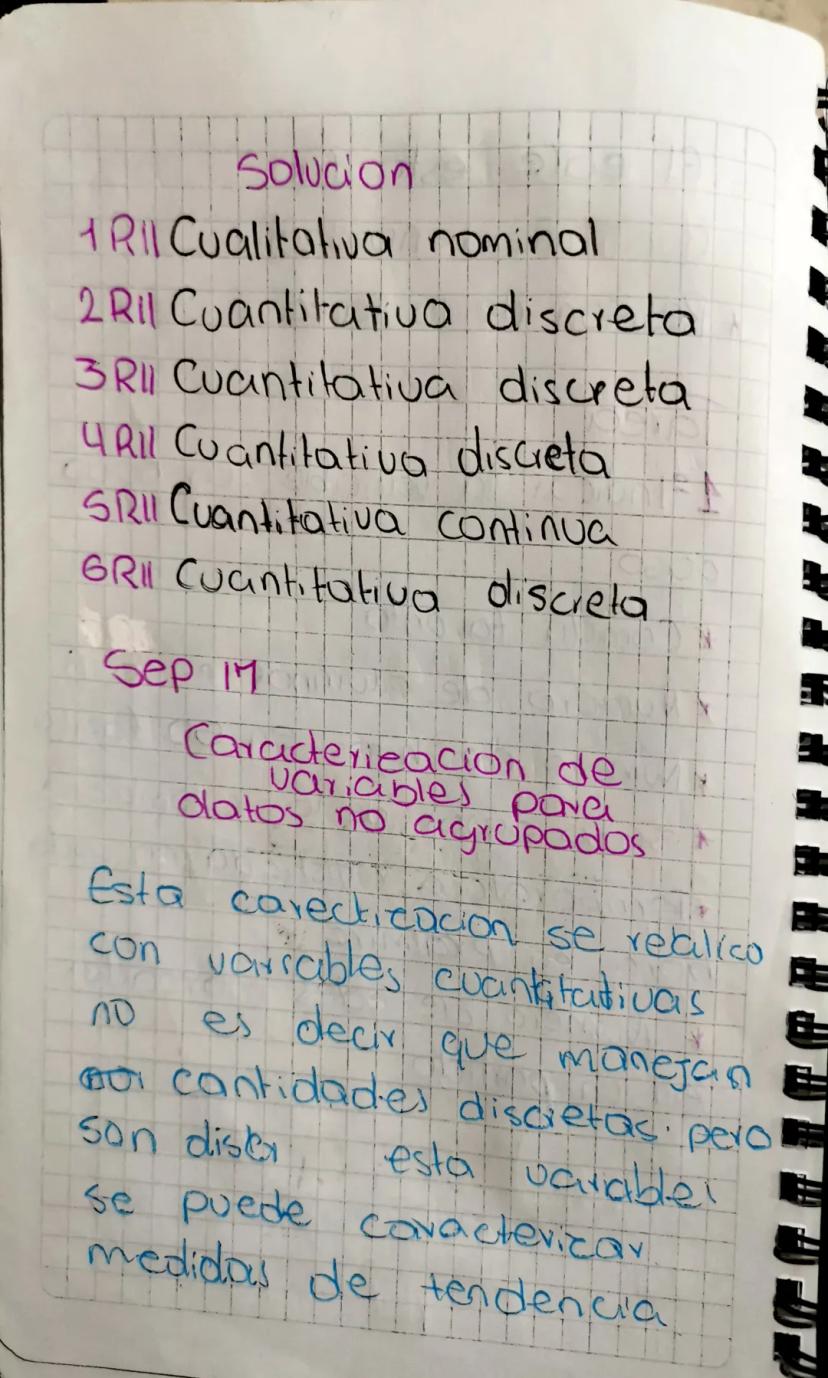 Solucion
1 R// Cualitativa nominal
2 R// Cuantitativa discreta
3 R// Cuantitativa discreta
4 R// Cuantitativa discreta
5 R// Cuantitativa continua
6 R// Cuantitativa discreta
Sep 17
Caracterieacion de
variables para
datos no agrupados
Esta carecticacion se realico
con variables cuantitativas
no es decir que manejan
cantidades discretas pero
son esta variables
se puede caracterizar
medidas de tendencia